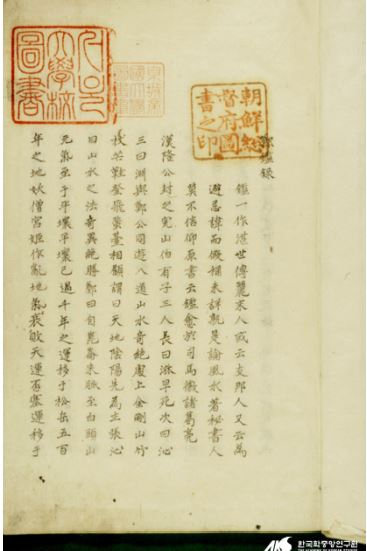 서울
大學校
圖書
朝鮮總
督府圖
書之印
鄭鑑錄
鑑一作湛世傳麗末人或云支那人又云爲
避忌諱而假稱未詳孰是論風水著秘書人
莫不信仰原書云鑑愈於司馬徽諸葛亮
漢隆公封之完山伯有子三人長曰淋早死次曰沁
三曰淵與鄭公同遊八道山水奇絶處上金剛山竹
杖芒鞋登飛蘆臺相顧謂曰天地陰陽先爲主張沁
曰山水之法奇異絶勝鄭曰自崑崙來脈至白頭山
元氣至于平壤平壤已過千年之運移于松岳五百
年之地妖僧宮姬作亂地氣衰敗天運否塞運移于
한국학중앙연구원
THE ACADEMY OF KOREAN STUDIES